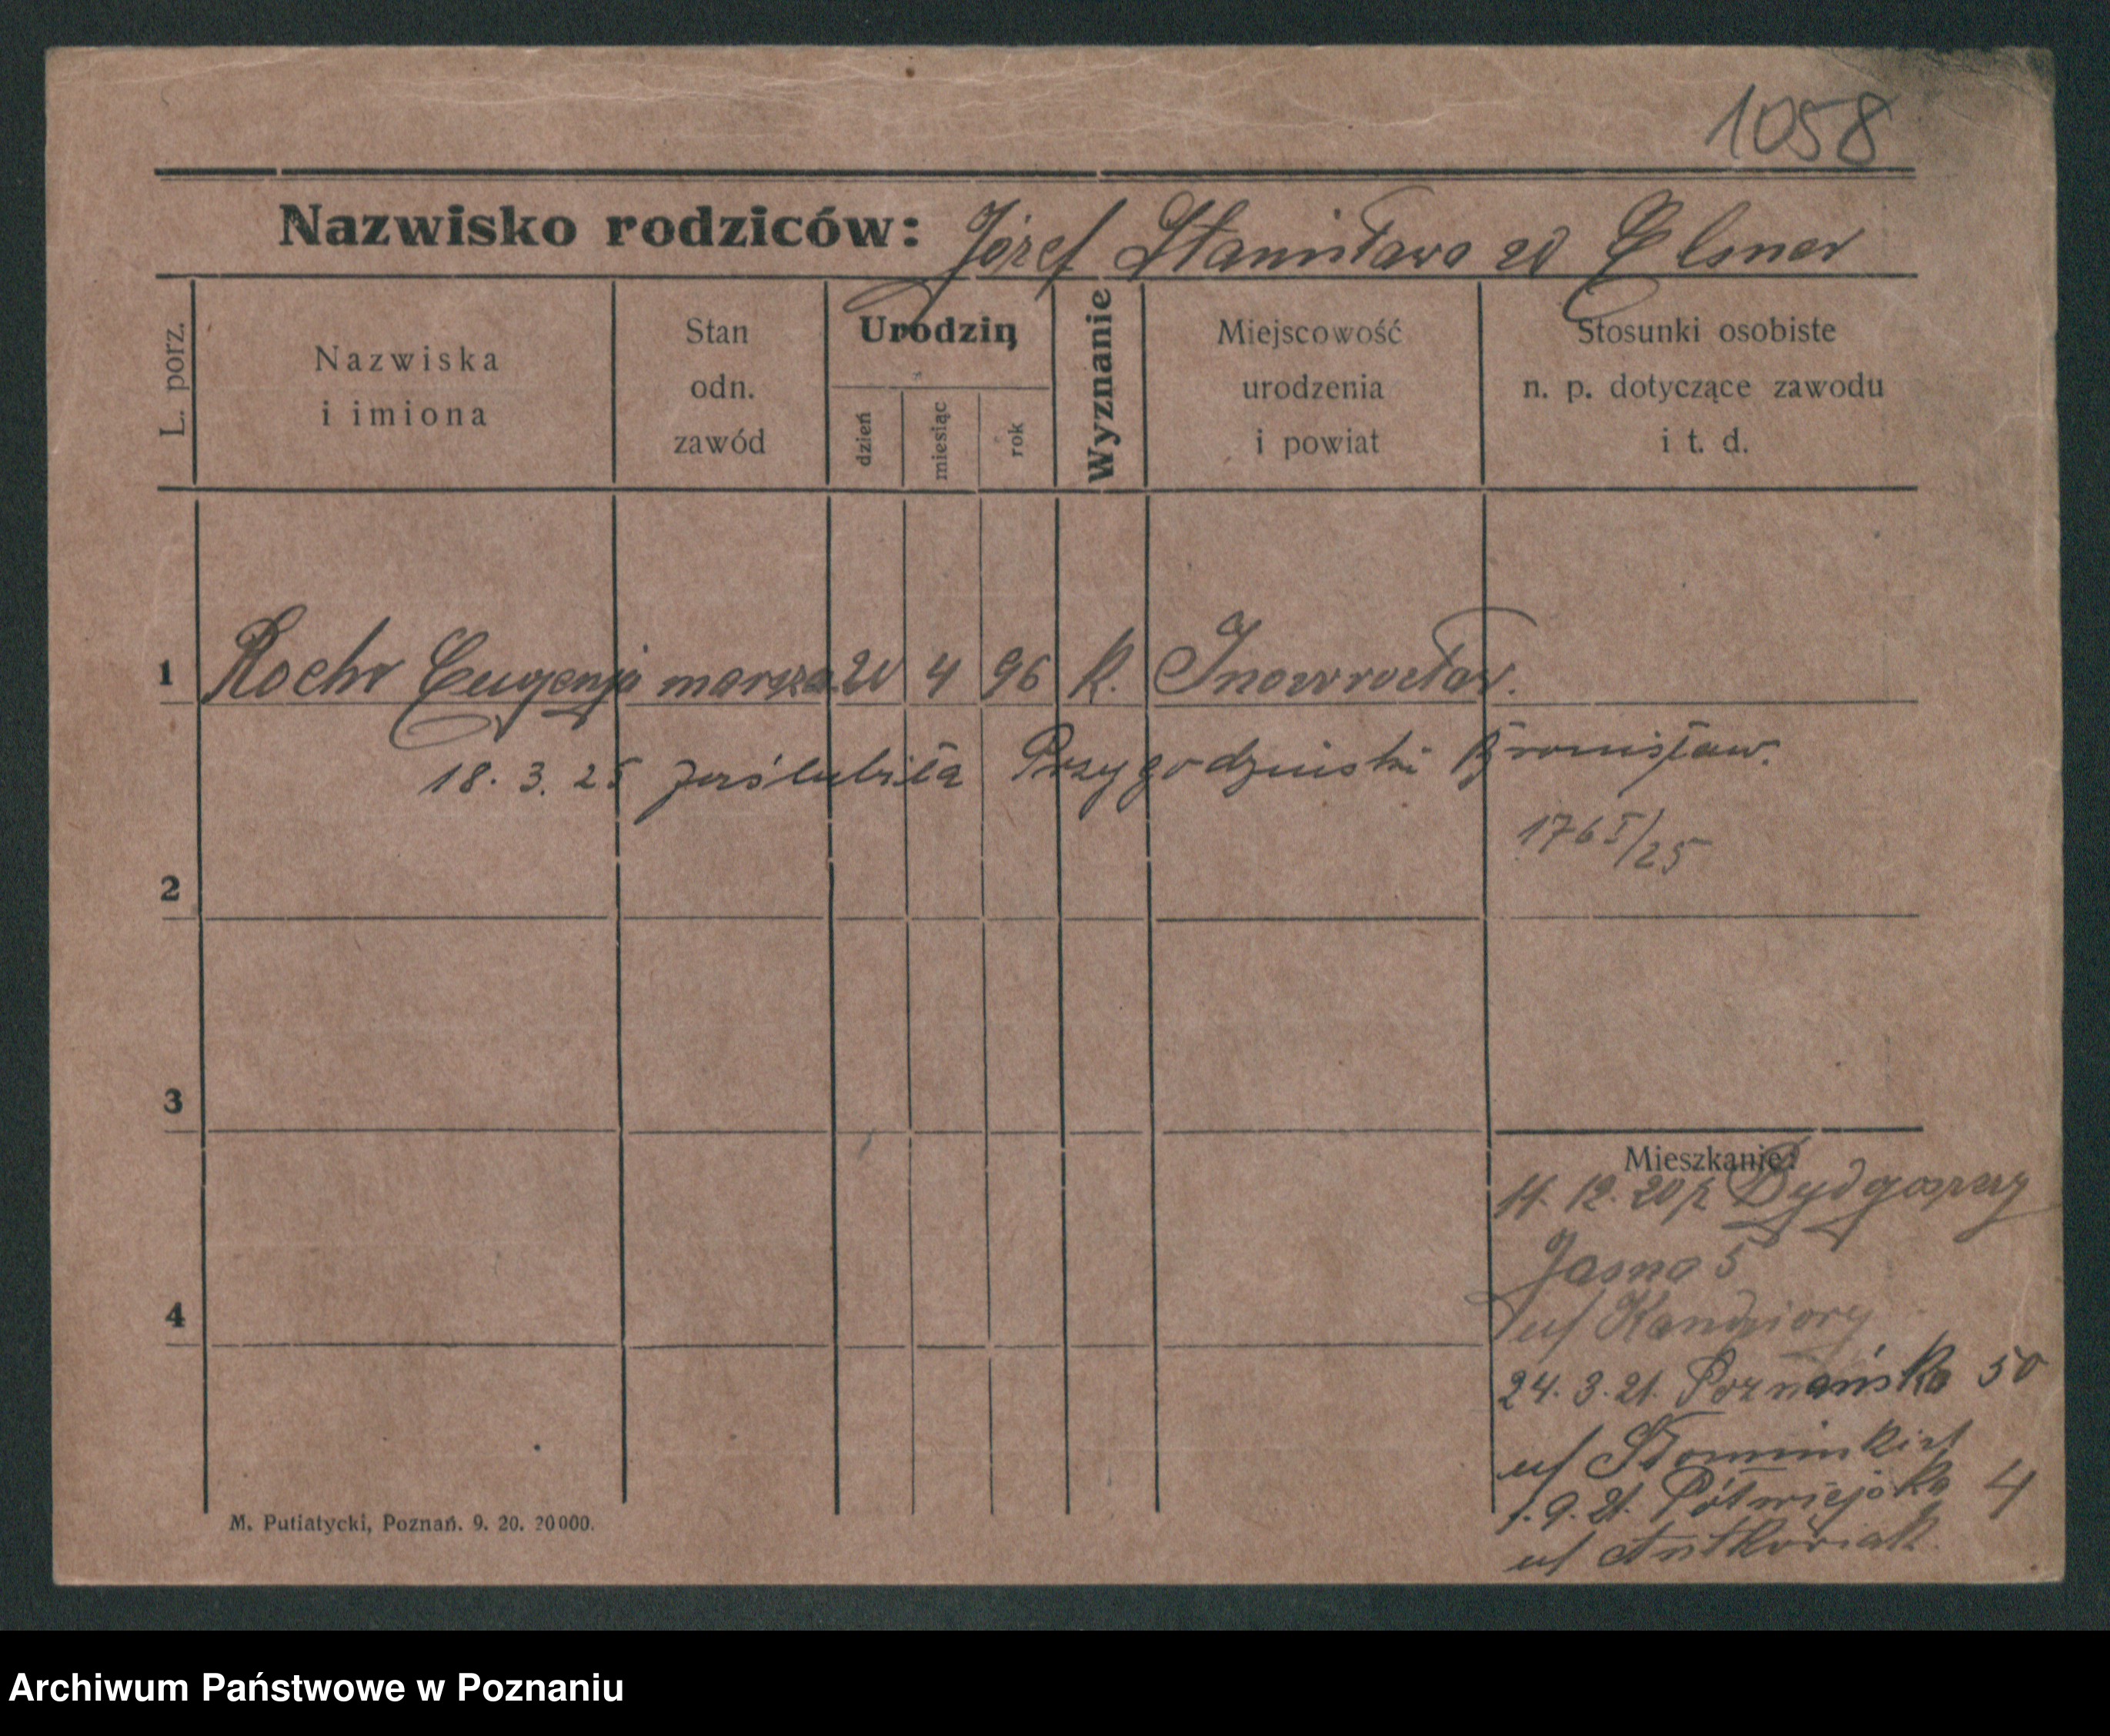 1058
Nazwisko rodziców: Józef Stanisława zd Elsner
L. porz.
Nazwiska
i imiona
Stan
odn.
zawód
Urodzin
dzień
miesiąc
rok
Wyznanie
Miejscowość
urodzenia
i powiat
Stosunki osobiste
n. p. dotyczące zawodu
i t. d.
1 Roehr Eugenja 20 4 96 k. Inowrocław.
18. 3. 25 zaślubiła Przygodziński Bronisław.
176 I/25
2
3
4
Mieszkanie:
11. 12. 20 z Bydgoszczy
Jasna 5
u/ Kandziory
24. 3. 21. Poznańska 50
u/
1. 9. 21. Półwiejska 4
u/ Antkowiak.
M. Putiatycki, Poznań. 9. 20. 20000.
Archiwum Państwowe w Poznaniu